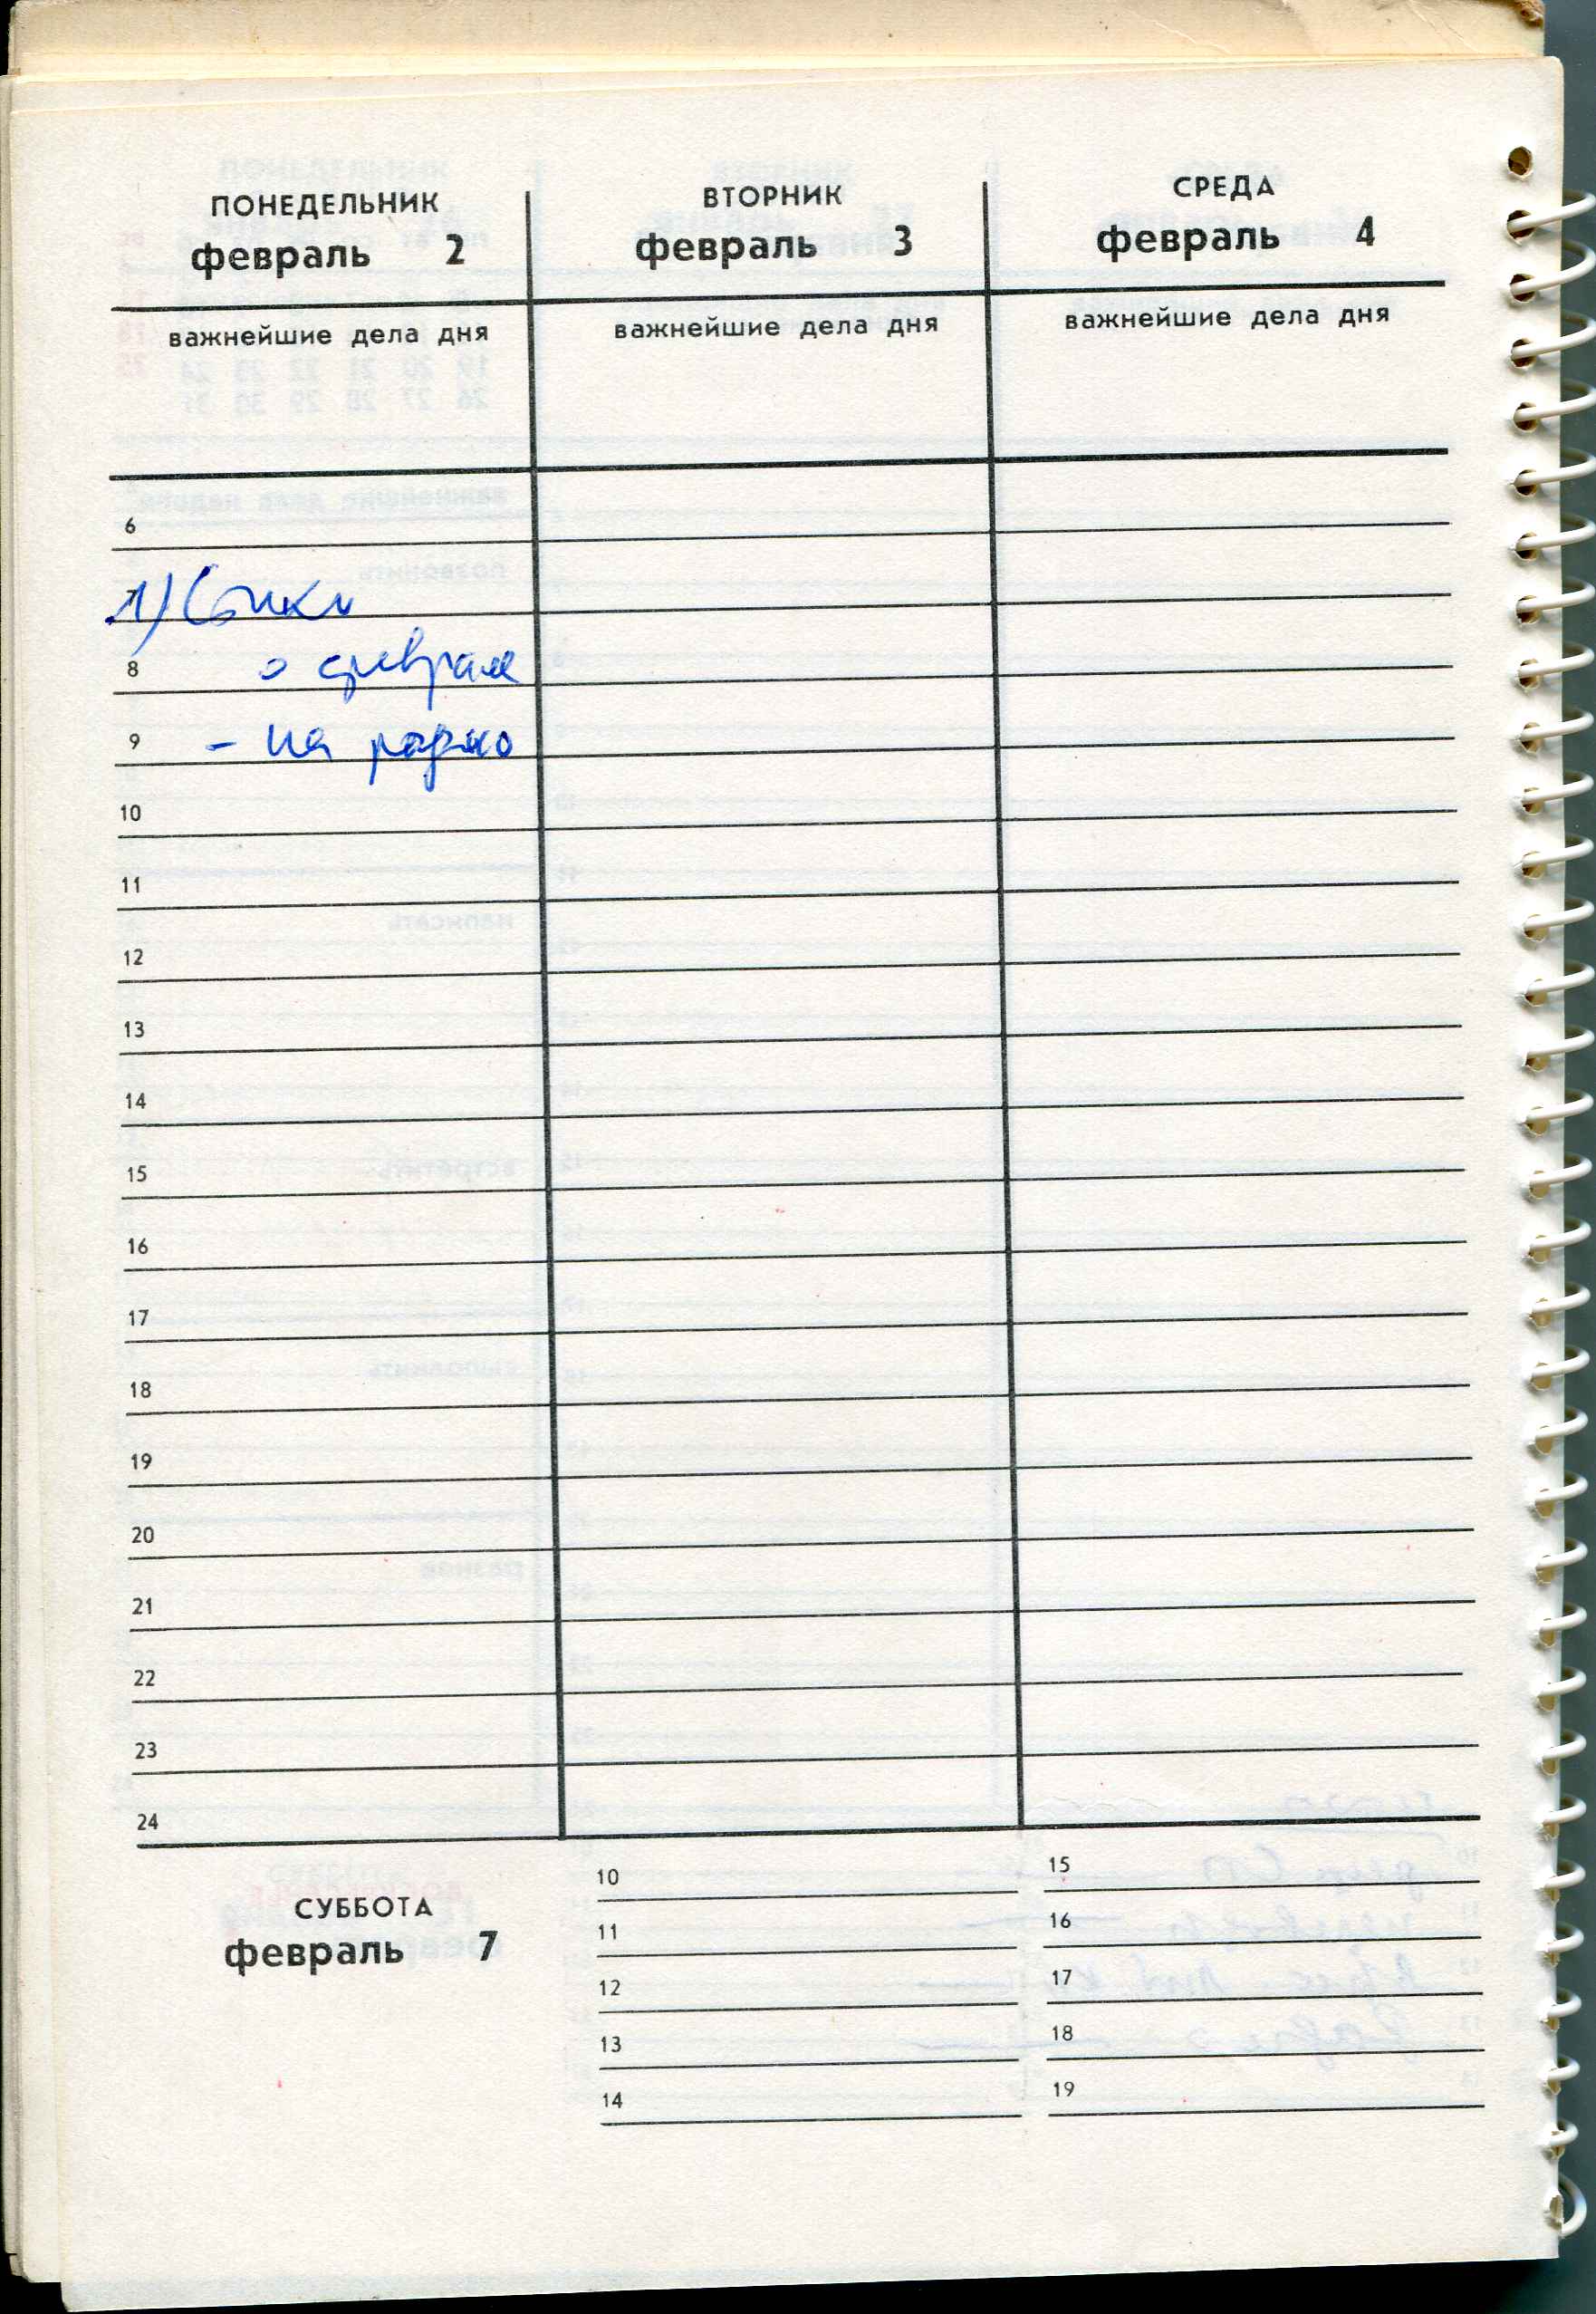 ПОНЕДЕЛЬНИК
февраль 2
ВТОРНИК
февраль 3
СРЕДА
февраль 4
важнейшие дела дня
важнейшие дела дня
важнейшие дела дня
6
1) Стихи
8 о феврале
9 – на радио
10
11
12
13
14
15
16
17
18
19
20
21
22
23
24
СУББОТА
февраль 7
10
11
12
13
14
15
16
17
18
19